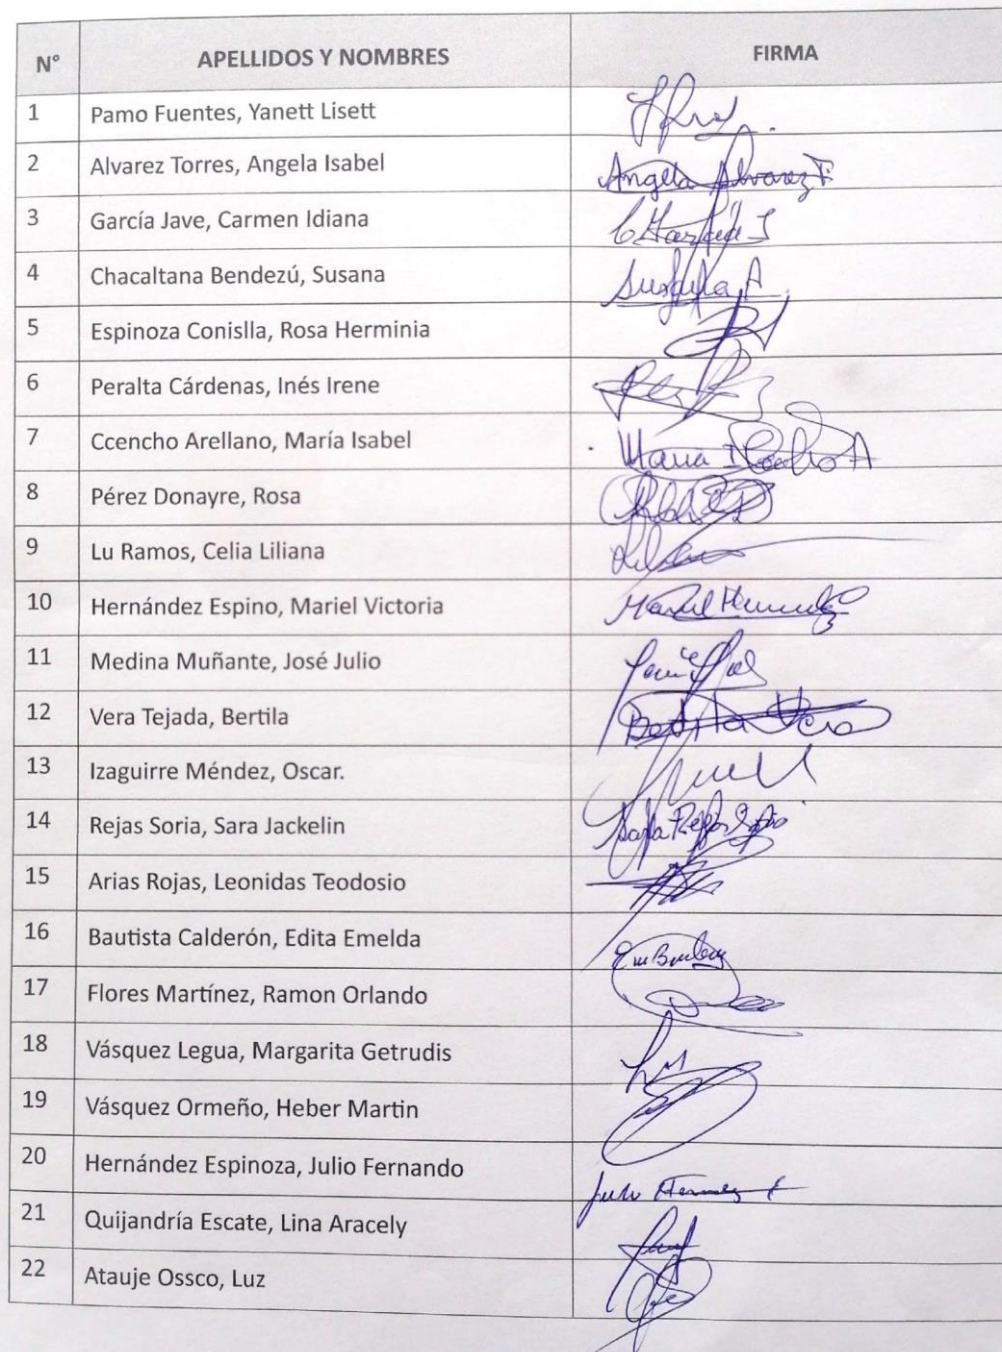 N° APELLIDOS Y NOMBRES FIRMA
1 Pamo Fuentes, Yanett Lisett
2 Alvarez Torres, Angela Isabel Angela Alvarez T.
3 García Jave, Carmen Idiana
4 Chacaltana Bendezú, Susana
5 Espinoza Conislla, Rosa Herminia
6 Peralta Cárdenas, Inés Irene
7 Ccencho Arellano, María Isabel Maria I
8 Pérez Donayre, Rosa
9 Lu Ramos, Celia Liliana
10 Hernández Espino, Mariel Victoria
11 Medina Muñante, José Julio
12 Vera Tejada, Bertila Bertila Vera
13 Izaguirre Méndez, Oscar.
14 Rejas Soria, Sara Jackelin
15 Arias Rojas, Leonidas Teodosio
16 Bautista Calderón, Edita Emelda
17 Flores Martínez, Ramon Orlando
18 Vásquez Legua, Margarita Getrudis
19 Vásquez Ormeño, Heber Martin
20 Hernández Espinoza, Julio Fernando
21 Quijandría Escate, Lina Aracely
22 Atauje Ossco, Luz